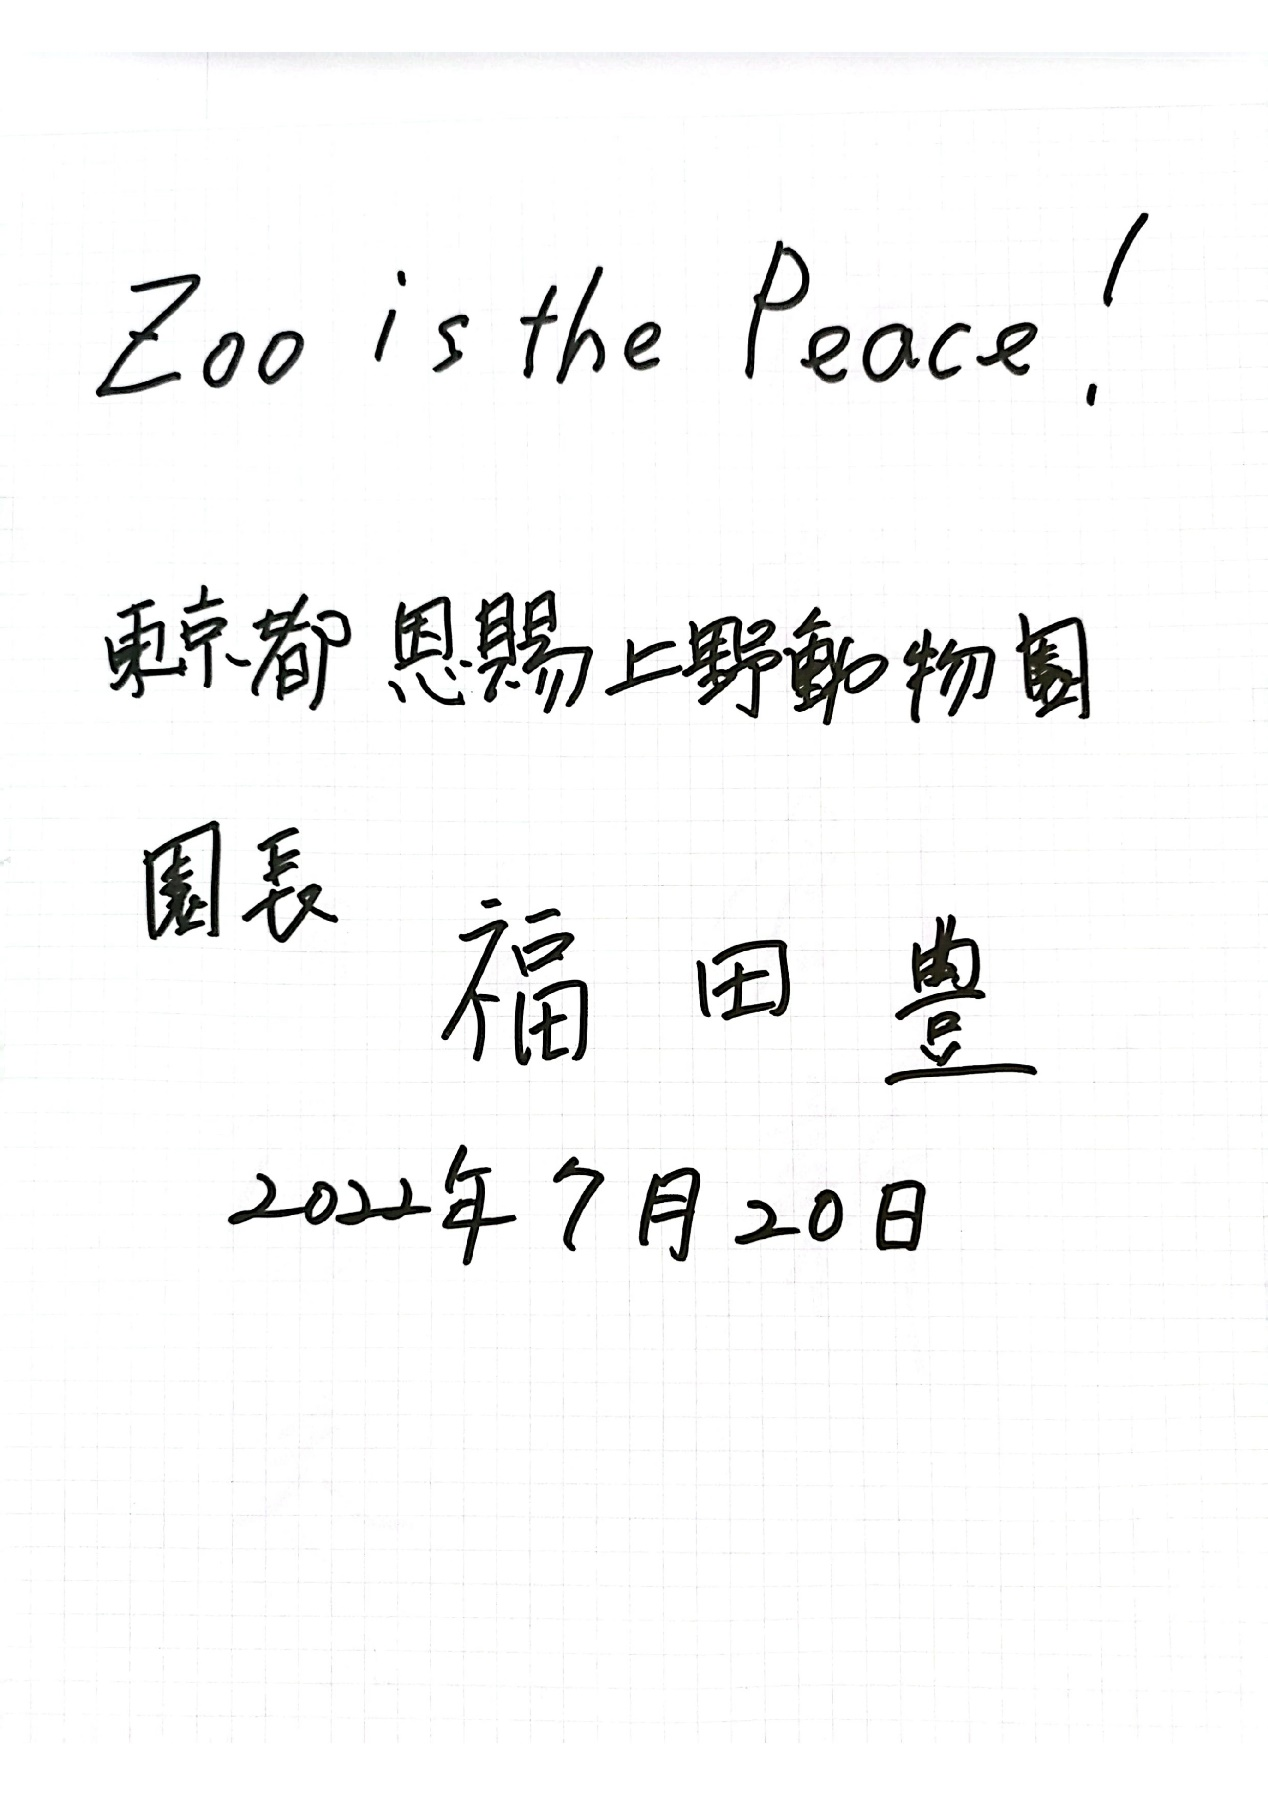 Zoo is the Peace!
東京都 恩賜上野動物園
園長
福田豊
2022年7月20日